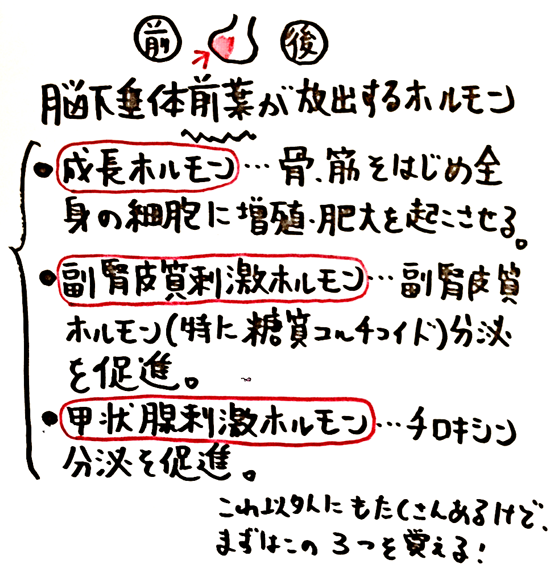 前 後
脳下垂体前葉が放出するホルモン
・成長ホルモン…骨、筋をはじめ全
身の細胞に増殖・肥大を起こさせる。
・副腎皮質刺激ホルモン…副腎皮質
ホルモン(特に糖質コルチコイド)分泌
を促進。
・甲状腺刺激ホルモン…チロキシン
分泌を促進。
これ以外にもたくさんあるけど、
まずはこの3つを覚える!